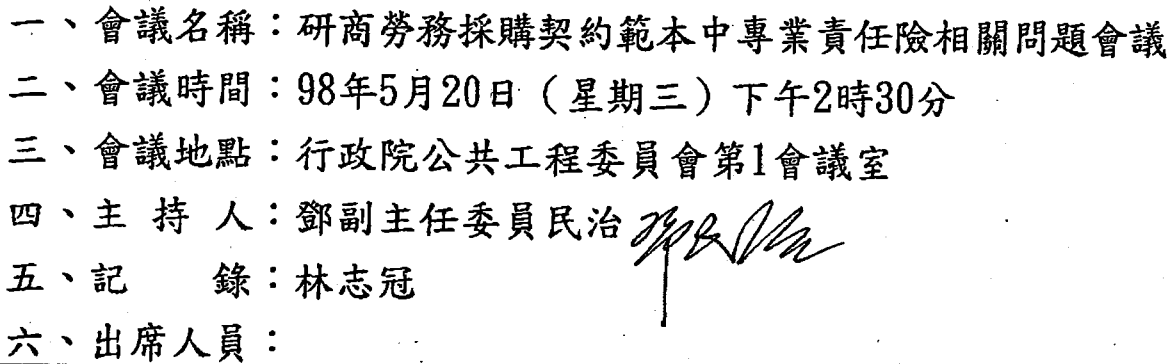 一、會議名稱：研商勞務採購契約範本中專業責任險相關問題會議
二、會議時間：98年5月20日（星期三）下午2時30分
三、會議地點：行政院公共工程委員會第1會議室
四、主 持 人：鄧副主任委員民治 鄧民治
五、記　　錄：林志冠
六、出席人員：